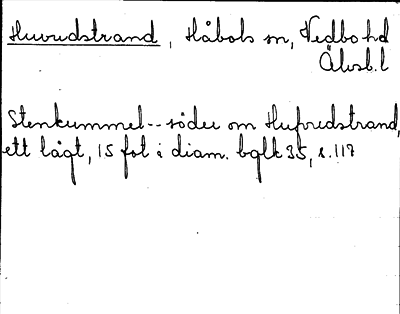 Huvudstrand, Håbols sn, Vedbo hd
Älvsb. l
Stenkummel -- söder om Hufvudstrand,
ett lågt, 15 fot i diam. bglk 35, s. 117